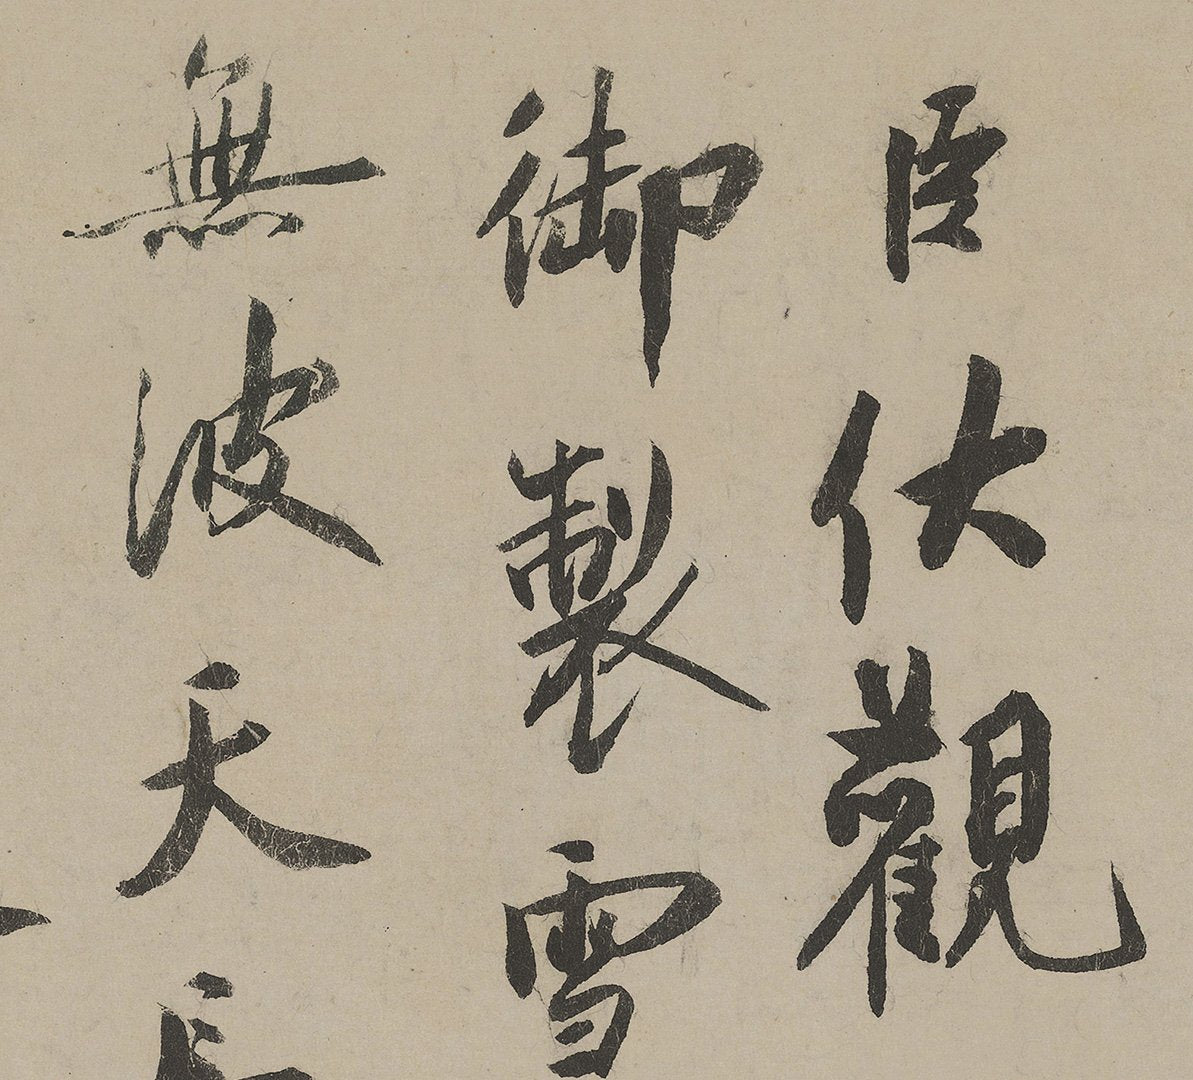 臣伏觀
御製雪
無波天長